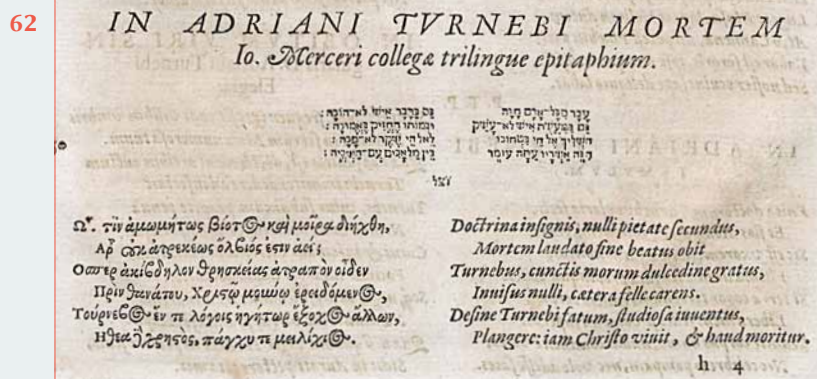 62
IN ADRIANI TVRNEBI MORTEM
Io. Merceri collegæ trilingue epitaphium.
גם בדבר איש לא־הונה׃
גם איש לא־עשק
ובמותו החזיק באמונה׃
אל חי
לאל חי לא־
הנה עתה עומד
בין מלאכים
Ωʹ. τίν ἀμωμήτως βίοτος καὶ μοῖρα διήχθη,
Αρ οὐκ ἀτρεκέως ὄλβιός ἐστιν ἀεί;
Οσπερ ἀκίβδηλον θρησκείας ἀτραπὸν οἶδεν
Πρὶν θανάτου, Χριστῷ μούνῳ ἐρειδόμενος,
Τούρνεβος ἔν τε λόγοις ἡγήτωρ ἔξοχος ἄλλων,
Ηθεα χρηστός, πάγχυ τε μειλίχιος.
Doctrina insignis, nulli pietate secundus,
Mortem laudato fine beatus obit
Turnebus, cunctis morum dulcedine gratus,
Inuisus nulli, cætera felle carens.
Define Turnebi fatum, studiosa iuuentus,
Plangere: iam Christo viuit, & haud moritur.
h 4